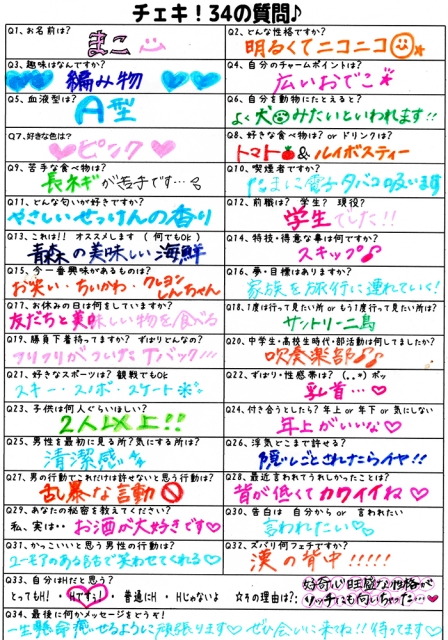 チェキ！34の質問♪
Q1、お名前は？
まこ
Q2、どんな性格ですか？
明るくてニコニコ
Q3、趣味はなんですか？
編み物
Q4、自分のチャームポイントは？
広いおでこ
Q5、血液型は？
A型
Q6、自分を動物にたとえると？
よく犬みたいといわれます!!
Q7、好きな色は？
ピンク
Q8、好きな食べ物は？ or ドリンクは？
トマト&ルイボスティー
Q9、苦手な食べ物は？
長ネギが苦手です…
Q10、喫煙者ですか？
たまに電子タバコの吸います
Q11、どんな匂いが好きですか？
やさしいせっけんの香り
Q12、前職は？ 学生？ 現役？
学生でした!!
Q13、これは!! オススメします （何でもOK）
青森の美味しい海鮮
Q14、特技・得意な事は何ですか？
スキップ♪
Q15、今一番興味があるものは？
お笑い・ちいかわ・クレヨンしんちゃん
Q16、夢・目標はありますか？
家族を旅行に連れていく!
Q17、お休みの日は何をしていますか？
友だちと美味しい物を食べる
Q18、1度は行って見たい所 or もう1度行って見たい所は？
サントリーニ島
Q19、勝負下着持ってますか？ ずばりどんなの？
フリフリがついたTバック!!!
Q20、中学生・高校生時代・部活動は何してましたか？
吹奏楽部♪♪
Q21、好きなスポーツは？ 観戦でもOK
スキー・スノボ・スケート
Q22、ずばり・性感帯は？ (..*) ポッ
乳首…♡
Q23、子供は何人ぐらいほしい？
2人以上!!
Q24、付き合うとしたら？ 年上 or 年下 or 気にしない
年上がいい♡
Q25、男性を最初に見る所？気にする所は？
清潔感
Q26、浮気どこまで許せる？
隠しごとされたらイヤ!!
Q27、男の行動でこれだけは許せないと思う行動は？
乱暴な言動
Q28、最近言われてうれしかったことは？
背が低くてカワイイね♡
Q29、あなたの秘密を教えてください？
私、実は・・お酒が大好きです♡
Q30、告白は 自分から or 言われたい
言われたい♡
Q31、かっこいいと思う男性の行動は？
ユーモアのあるもので笑わせてくれる♡
Q32、ズバリ何フェチですか？
漢の背中!!!!!
Q33、自分はHだと思う？
とってもH！・Hですぅ！・普通にH・Hじゃないよ ☆その理由は？：
好奇心旺盛な性格がソッチにも向いちゃった…♡
Q34、最後に何かメッセージをどうぞ！
一生懸命癒せるように頑張ります♡ぜひ会いに来ね!!待ってます♡